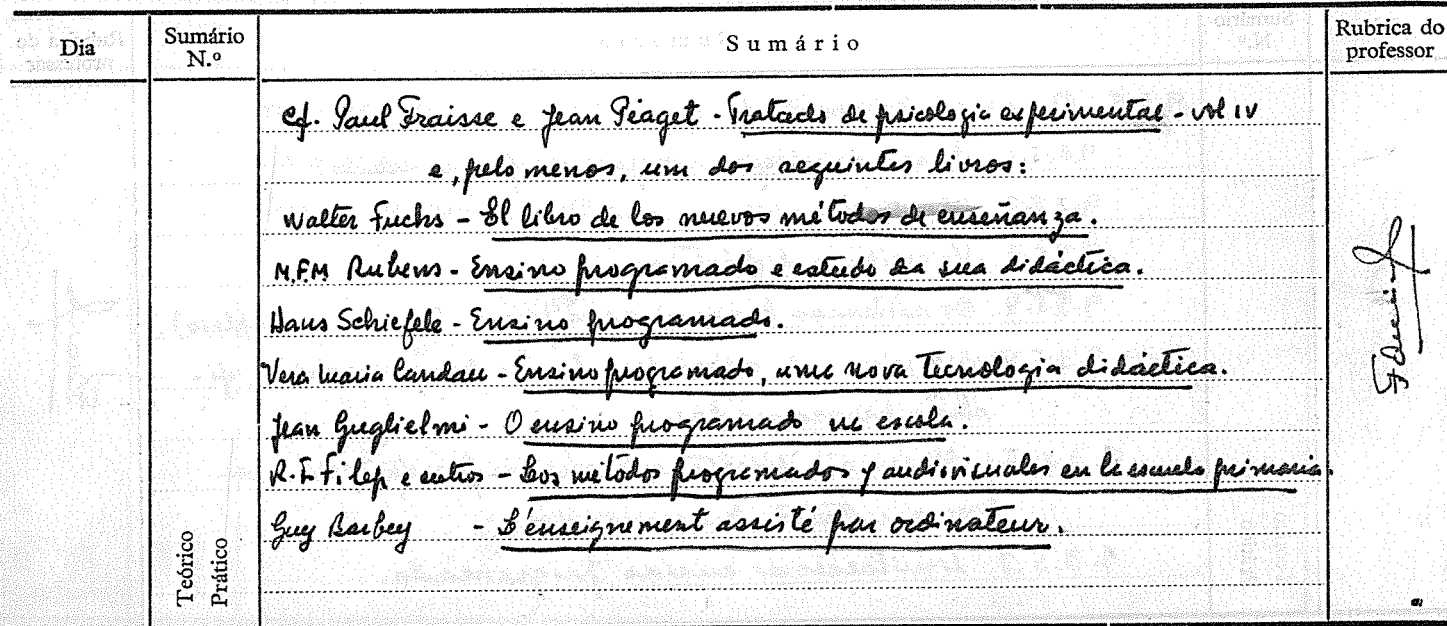 Dia
Sumário N.º
Sumário
Rubrica do professor
cf. Paul Fraisse e Jean Piaget - Tratado de psicologia experimental - vol IV
e, pelo menos, um dos seguintes livros:
Walter Fuchs - El libro de los nuevos métodos de enseñanza.
M.F.M Rubens - Ensino programado e estudo da sua didáctica.
Hans Schiefele - Ensino programado.
Vera Maria Candau - Ensino programado, uma nova Tecnologia didáctica.
Jean Guglielmi - O ensino programado na escola.
R.T. Filep e outros - Los métodos programados y audiovisuales en la escuela primaria.
Guy Barbey - L'enseignement assisté par ordinateur.
Teórico
Prático